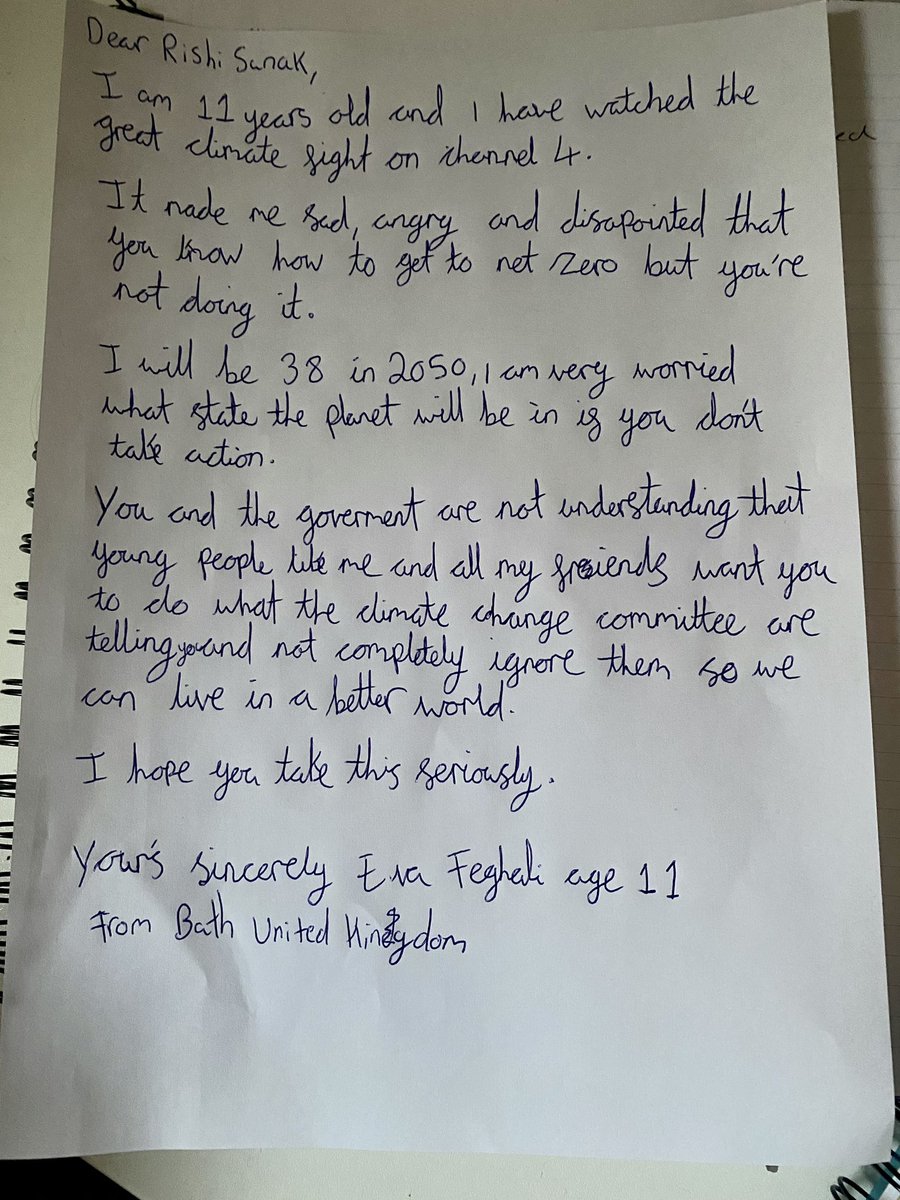 Dear Rishi Sunak,
I am 11 years old and I have watched the
great climate fight on channel 4.
It made me sad, angry and disapointed that
you know how to get to net zero but you're
not doing it.
I will be 38 in 2050, I am very worried
what state the planet will be in if you don't
take action.
You and the goverment are not understanding that
young people like me and all my freiends want you
to do what the climate change committee are
telling you and not completly ignore them so we
can live in a better world.
I hope you take this seriously.
Your's sincerely Eva Feghali age 11
From Bath United Kingdom